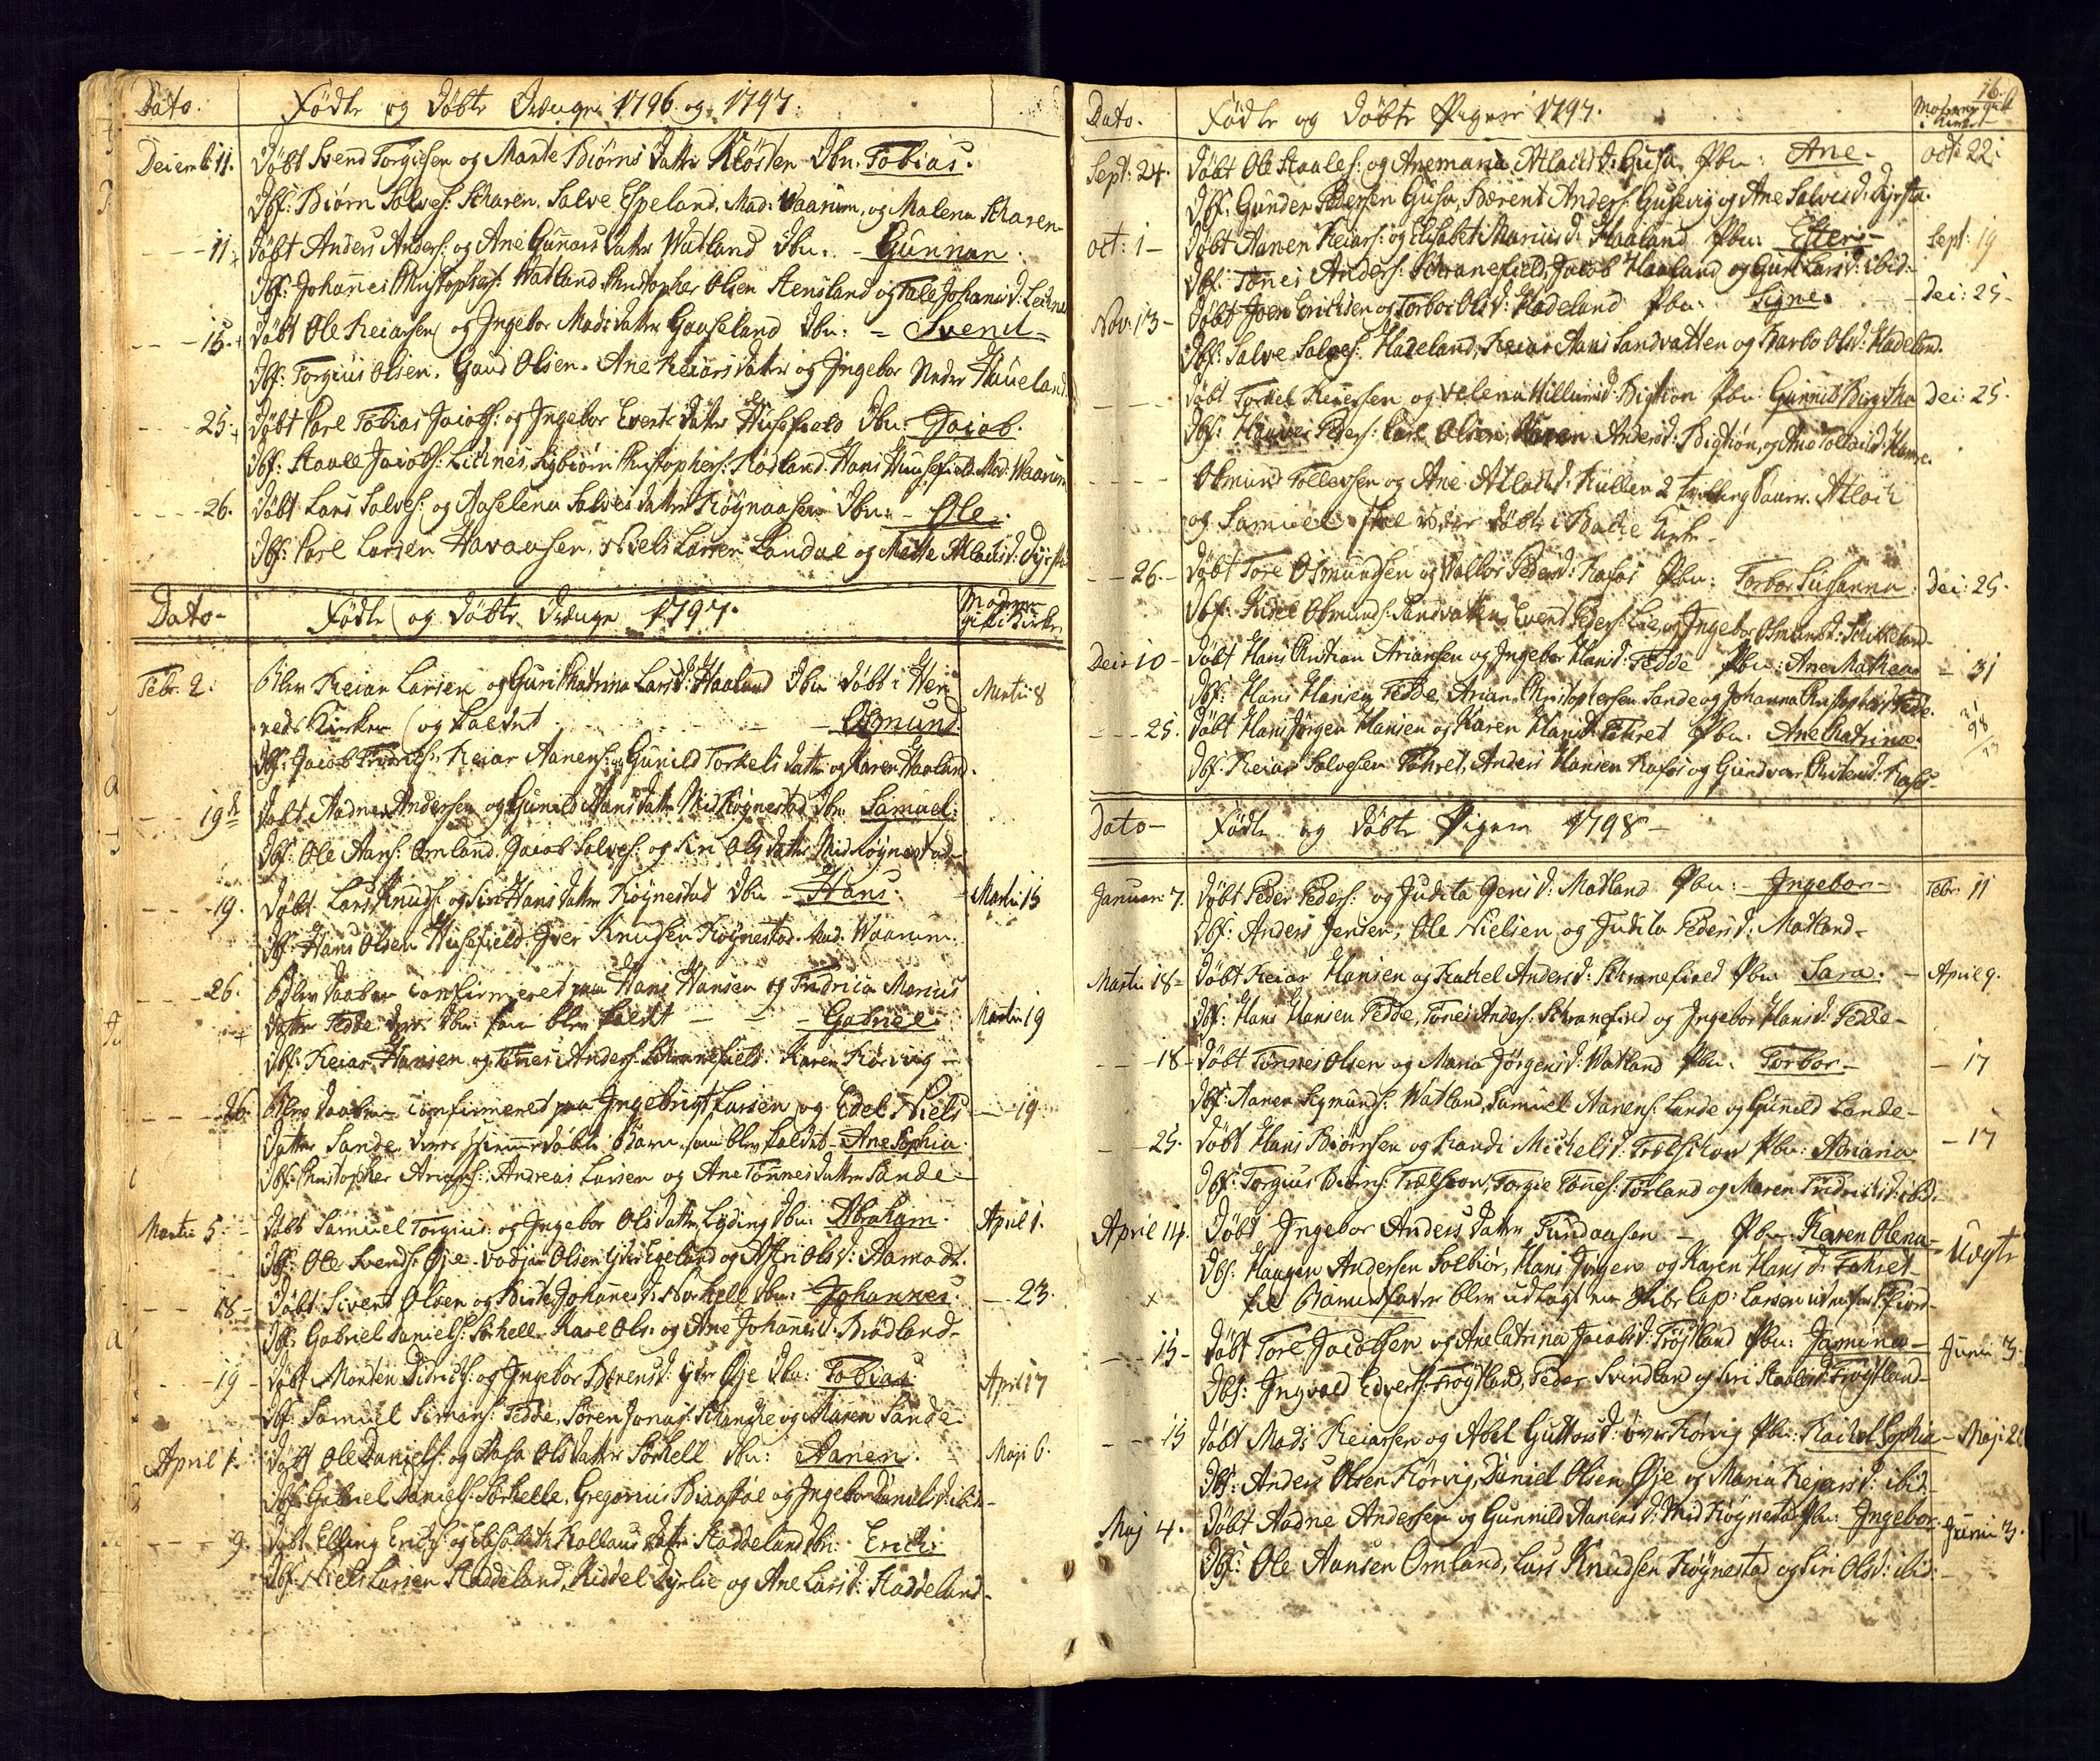 Dato. Fødte og Døbte Drænge 1796 og 1797.
Decemb: 11. Døbt Svend Torgiesen og Marte Biørns datter Kløsten Dbn: Tobias.
Dbf: Biørn Salves: Scharen, Salve Espeland, Mad: Waarum, og Malena Scharen
- - 11. Døbt Anders Anders: og Ane Gunnars datter Watland Dbn: - Gunnar.
Dbf: Johannes Christophers: Watland Christopher Olsen Stensland og Tale Johanis d:
- - 15. Døbt Ole Reiarsen og Ingebor Mads datter Gauseland Dbn: - Svend -
Dbf: Torgius Olsen, Gaud Olsen. Ane Reiars datter og Ingebor Nedre Haueland
- - 25. Døbt Parl Tobias Jacobs: og Ingebor Everts datter Husefield Dbn: Jacob.
Dbf: Staale Jacobs: Lidnes, Sigbiørn Christophers: Rødland. Hans Husefield Mad: Waarum
- - 26. Døbt Lars Salves: og Aaselena Salves datter Røgnaasen Dbn: - Ole.
Dbf: Parl Larsen Havaasen, Niels Larsen Landal og Mette Atlaks d:
Dato - Fødte og Døbte Drænge 1797. Modren gik i Kirke
Febr. 2. Blev Reiar Larsen og Guri Chatrina Lars d: Haaland Dbn døbt i Her Martii 8
reds Kirke og kaldet - - - Osmund.
Dbf: Jacob Fridrichs: Reiar Aanens: og Gunild Torkels datter og Karen Haaland.
- - 19de Døbt Aadne Andersen og Gunild Hans datter Mid Røgnestad Dbn: Samuel:
Dbf: Ole Aans: Omland. Jacob Salves: og Siri Ols datter Midrøgnestad
- - 19. Døbt Lars Knuds: og Siri Hans datter Røgnestad Dbn - Hans. - Martii 15
Dbf: Hans Olsen Husefield. Iver Knudsen Røgnestad. Mad: Waarum.
- - 26. Blev daaben confirmeret paa Hans Hansen og Fridricia Marius
datter Fedde deres Dbn: som blev kaldet - - Gabriel Martii 19
Dbf: Reiar Hansen og Tønnes Anders: Schranefield. Karen Rørvig -
- - 26. Blev daaben confirmeret paa Ingebrigt Larsen og Edel Niels - 19
datter Sande deres hiemmedøbte Barn som blev kaldet - Ane Sophia.
Dbf: Christopher Arians: Andreas Larsen og Ane Tønnes datter Sande -
Martii 5. - Døbt Samuel Torgius: og Ingebor Ols datter Lyding Dbn: Abraham. April 1.
Dbf: Ole Svends: Øje. Olsen Egeland og Asteri Ols d: Aamodt.
- - 18 - Døbt Sivert Olsen og Johanes d: Dbn: Johannes. - 23.
Dbf: Gabriel Daniels: Sørhell. Karl Ols: og Ane Johanes d: Brødland -
- - 19 - Døbt Morten Didrichs: og Ingebor Bærens d: yttre Øje Dbn: Tobias. April 17
Dbf: Samuel Simons: Fedde, Søren Jonas: Schanche og Maren Sande.
April 1. Døbt Ole Daniels: og Aasa Ols datter Sørhell Dbn: Aanen. - Maji 6.
Dbf: Gabriel Daniels: Sørhelle, Gregorius og Ingebor Daniels d: ibid: -
- - 9. Døbt Elling Erichs: og Elisabeth Rollaus datter Staddeland Dbn: Erich:
Dbf: Niels Larsen Staddeland, Riddel Dyrlie og Ane Lars d: Staddeland -
16.
Dato. Fødte og Døbte Pigner 1797. Modren gik i Kirke
Sept: 24. Døbt Ole Staales: og Anemaria Atlaks d: Gusa. Pbn: Ane. Oct: 22.
Dbf: Gunder Pedersen Gusa, Bærent Anders: Gusevig og Ane Salves d:
Oct: 1 - Døbt Aanen Reiars: og Elisabet Marius d: Haaland. Pbn: Ester - Sept: 19
Dbf: Tønes Anders: Schranefield, Jacob Haaland og Guri Lars d: ibid -
Nov: 13 - Døbt Joen Erichsen og Torbor Ols d: Hadeland Pbn: Signe. - Dec: 25 -
Dbf: Salve Salves: Hadeland, Reiar Aans: Sandvatten og Barbo Ols d: Hadeland.
- - Døbt Torkel Reiersen og Velena Willums d: Pbn: Gunnild Birgitha Dec: 25.
Dbf: Peders: Carl Olsen, Karen Anders d: og Ane Tollacs d:
- - Osmund Tollevsen og Ane Atlaks d: Kullen 2 tvilling Sønner. Atlach
og Samuel, skal være døbt i Bache Kirke -
- - 26 - Døbt Tore Osmundsen og Valbor Peders d: Rafos Pbn: Torbor Susanna. Dec: 25.
Dbf: Kidel Osmunds: Sandvatten, Evend Peders: Lie og Ingebor Osmunds d:
Dec: 10 - Døbt Hans Christian Ariansen og Ingebor Hans d: Fedde Pbn: Ane Mathea - 31
Dbf: Hans Hansen Fedde, Arian Christophersen Sande og Johanna Christophers d: Fedde.
- - 25. Døbt Hans Jørgen Hansen og Karen Hans d: Fehret Pbn: Ane Chatrina. 2/98 23
Dbf: Reiar Salvesen Fehret, Anders Hansen Rafos og Gundvor Christens d: Rafos -
Dato - Fødte og Døbte Piger 1798 -
Januar: 7. Døbt Peder Peders: og Judita Jens d: Matland Pbn: - Ingebor - Febr: 11
Dbf: Anders Jensen, Ole Nielsen og Judita Peders d: Matland -
Martii 18 - Døbt Reiar Hansen og Rachel Anders d: Schranefield Pbn: Sara. - April 9.
Dbf: Hans Hansen Fedde, Tønes Anders: Schranefield og Ingebor Hans d: Fedde -
- - 18 - Døbt Tønnes Olsen og Maria Jørgens d: Watland Pbn: Torbor - - 17
Dbf: Aanen Sigmunds: Watland, Samuel Aanens: Lande og Gunnild Lande -
- - 25. Døbt Hans Biørnsen og Randi Michels d: Pbn: Adriana - 17
Dbf: Torgius Biørns: Torgie Tønnes: Tørland og Maren Fridrichs d: ibid.
April 14. Døbt Ingebor Anders datter Tundaasen - Pbn: Karen Olena - Uægte
Dbf: Haagen Andersen Solbiør, Hans Jørgen og Karen Hans d: Fehret -
x til Barnefader blev udlagt en Skibs Cap: Larsen
- - 15 - Døbt Tore Jacobsen og Anecatrina Jacobs d: Frøgtland Pbn: Jamina - Junii 3.
Dbf: Ingvald Edverts: Frøgtland, Peder Svindland og Siri Staales d: Frøgtland -
- - 15 Døbt Mads Reiarsen og Abel Guttorms d: øvre Rørvig Pbn: Rachel Sophia - Maj: 2
Dbf: Anders Olsen Rørvig, Daniel Olsen Øje og Maria Rejars d: ibid: -
Maj 4. Døbt Aadne Andersen og Gunnild Aanens d: Mid Røgnestad Pbn: Ingebor - Junii 3.
Dbf: Ole Aansen Omland, Lars Knudsen Røgnestad og Siri Ols d: ibid: -